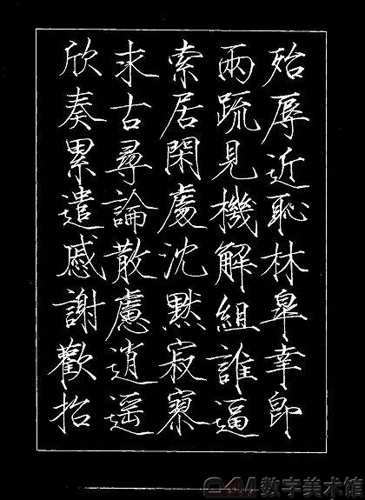 殆辱近恥林皐幸即
兩疏見機解組誰逼
索居閑處沈默寂寥
求古尋論散慮逍遥
欣奏累遣慼謝歡招
数字美术馆